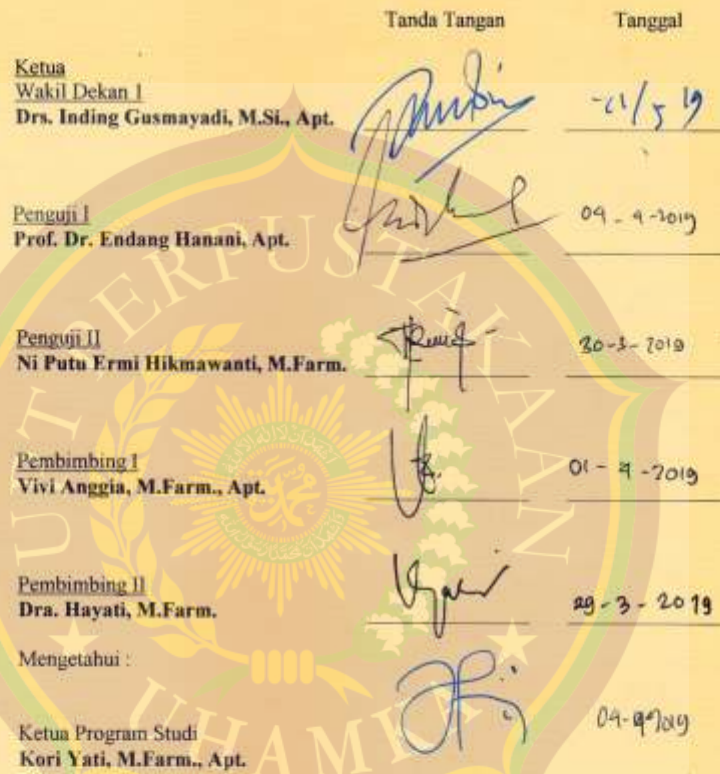 Tanda Tangan Tanggal
Ketua
Wakil Dekan 1
Drs. Inding Gusmayadi, M.Si., Apt.
Penguji I
Prof. Dr. Endang Hanani, Apt. 04 - 4 - 2019
Penguji II
Ni Putu Ermi Hikmawanti, M.Farm. 30 - 3 - 2019
Pembimbing I
Vivi Anggia, M.Farm., Apt. 01 - 4 - 2019
Pembimbing II
Dra. Hayati, M.Farm. 29 - 3 - 2019
Mengetahui :
Ketua Program Studi
Kori Yati, M.Farm., Apt.
UPT PERPUSTAKAAN
UHAMKA